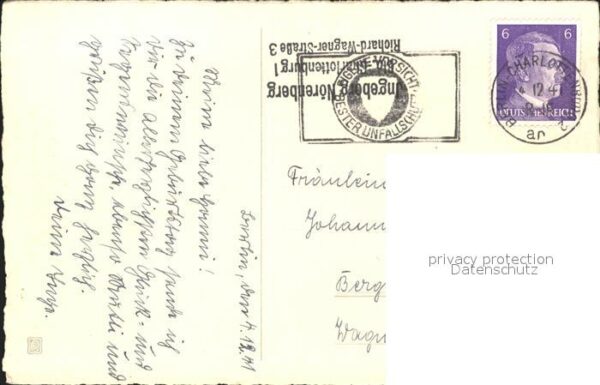 Berlin, den 4.12.41
Meine liebe Hanni!
Zu Deinem Geburtstag sende ich
Dir die allerherzlichsten Glück- und
Segenswünsche, ebenso Mutti und
grüßen Dich ganz herzlich.
Deine Inge.
Ingeborg Nörenberg
Bln.-Charlottenburg 1
Richard-Wagner-Straße 3
VORSICHT
BESTER UNFALLSCHUTZ
6 6
DEUTSCHES REICH
BERLIN-CHARLOTTENBURG 2
4.12.41
an
Fräulein
Johann
Berg
Wagn
privacy protection
Datenschutz